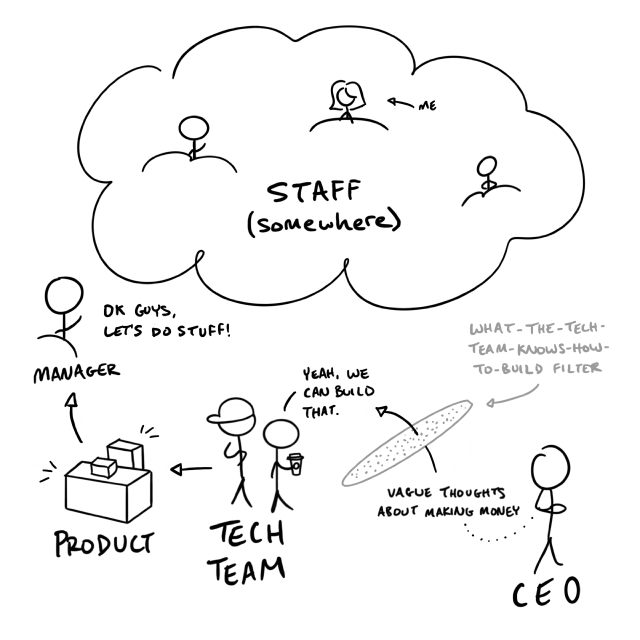 ME
STAFF
(somewhere)
OK GUYS,
LET'S DO STUFF!
MANAGER
WHAT-THE-TECH-
TEAM-KNOWS-HOW-
TO-BUILD FILTER
YEAH, WE
CAN BUILD
THAT.
VAGUE THOUGHTS
ABOUT MAKING MONEY
PRODUCT
TECH
TEAM
CEO